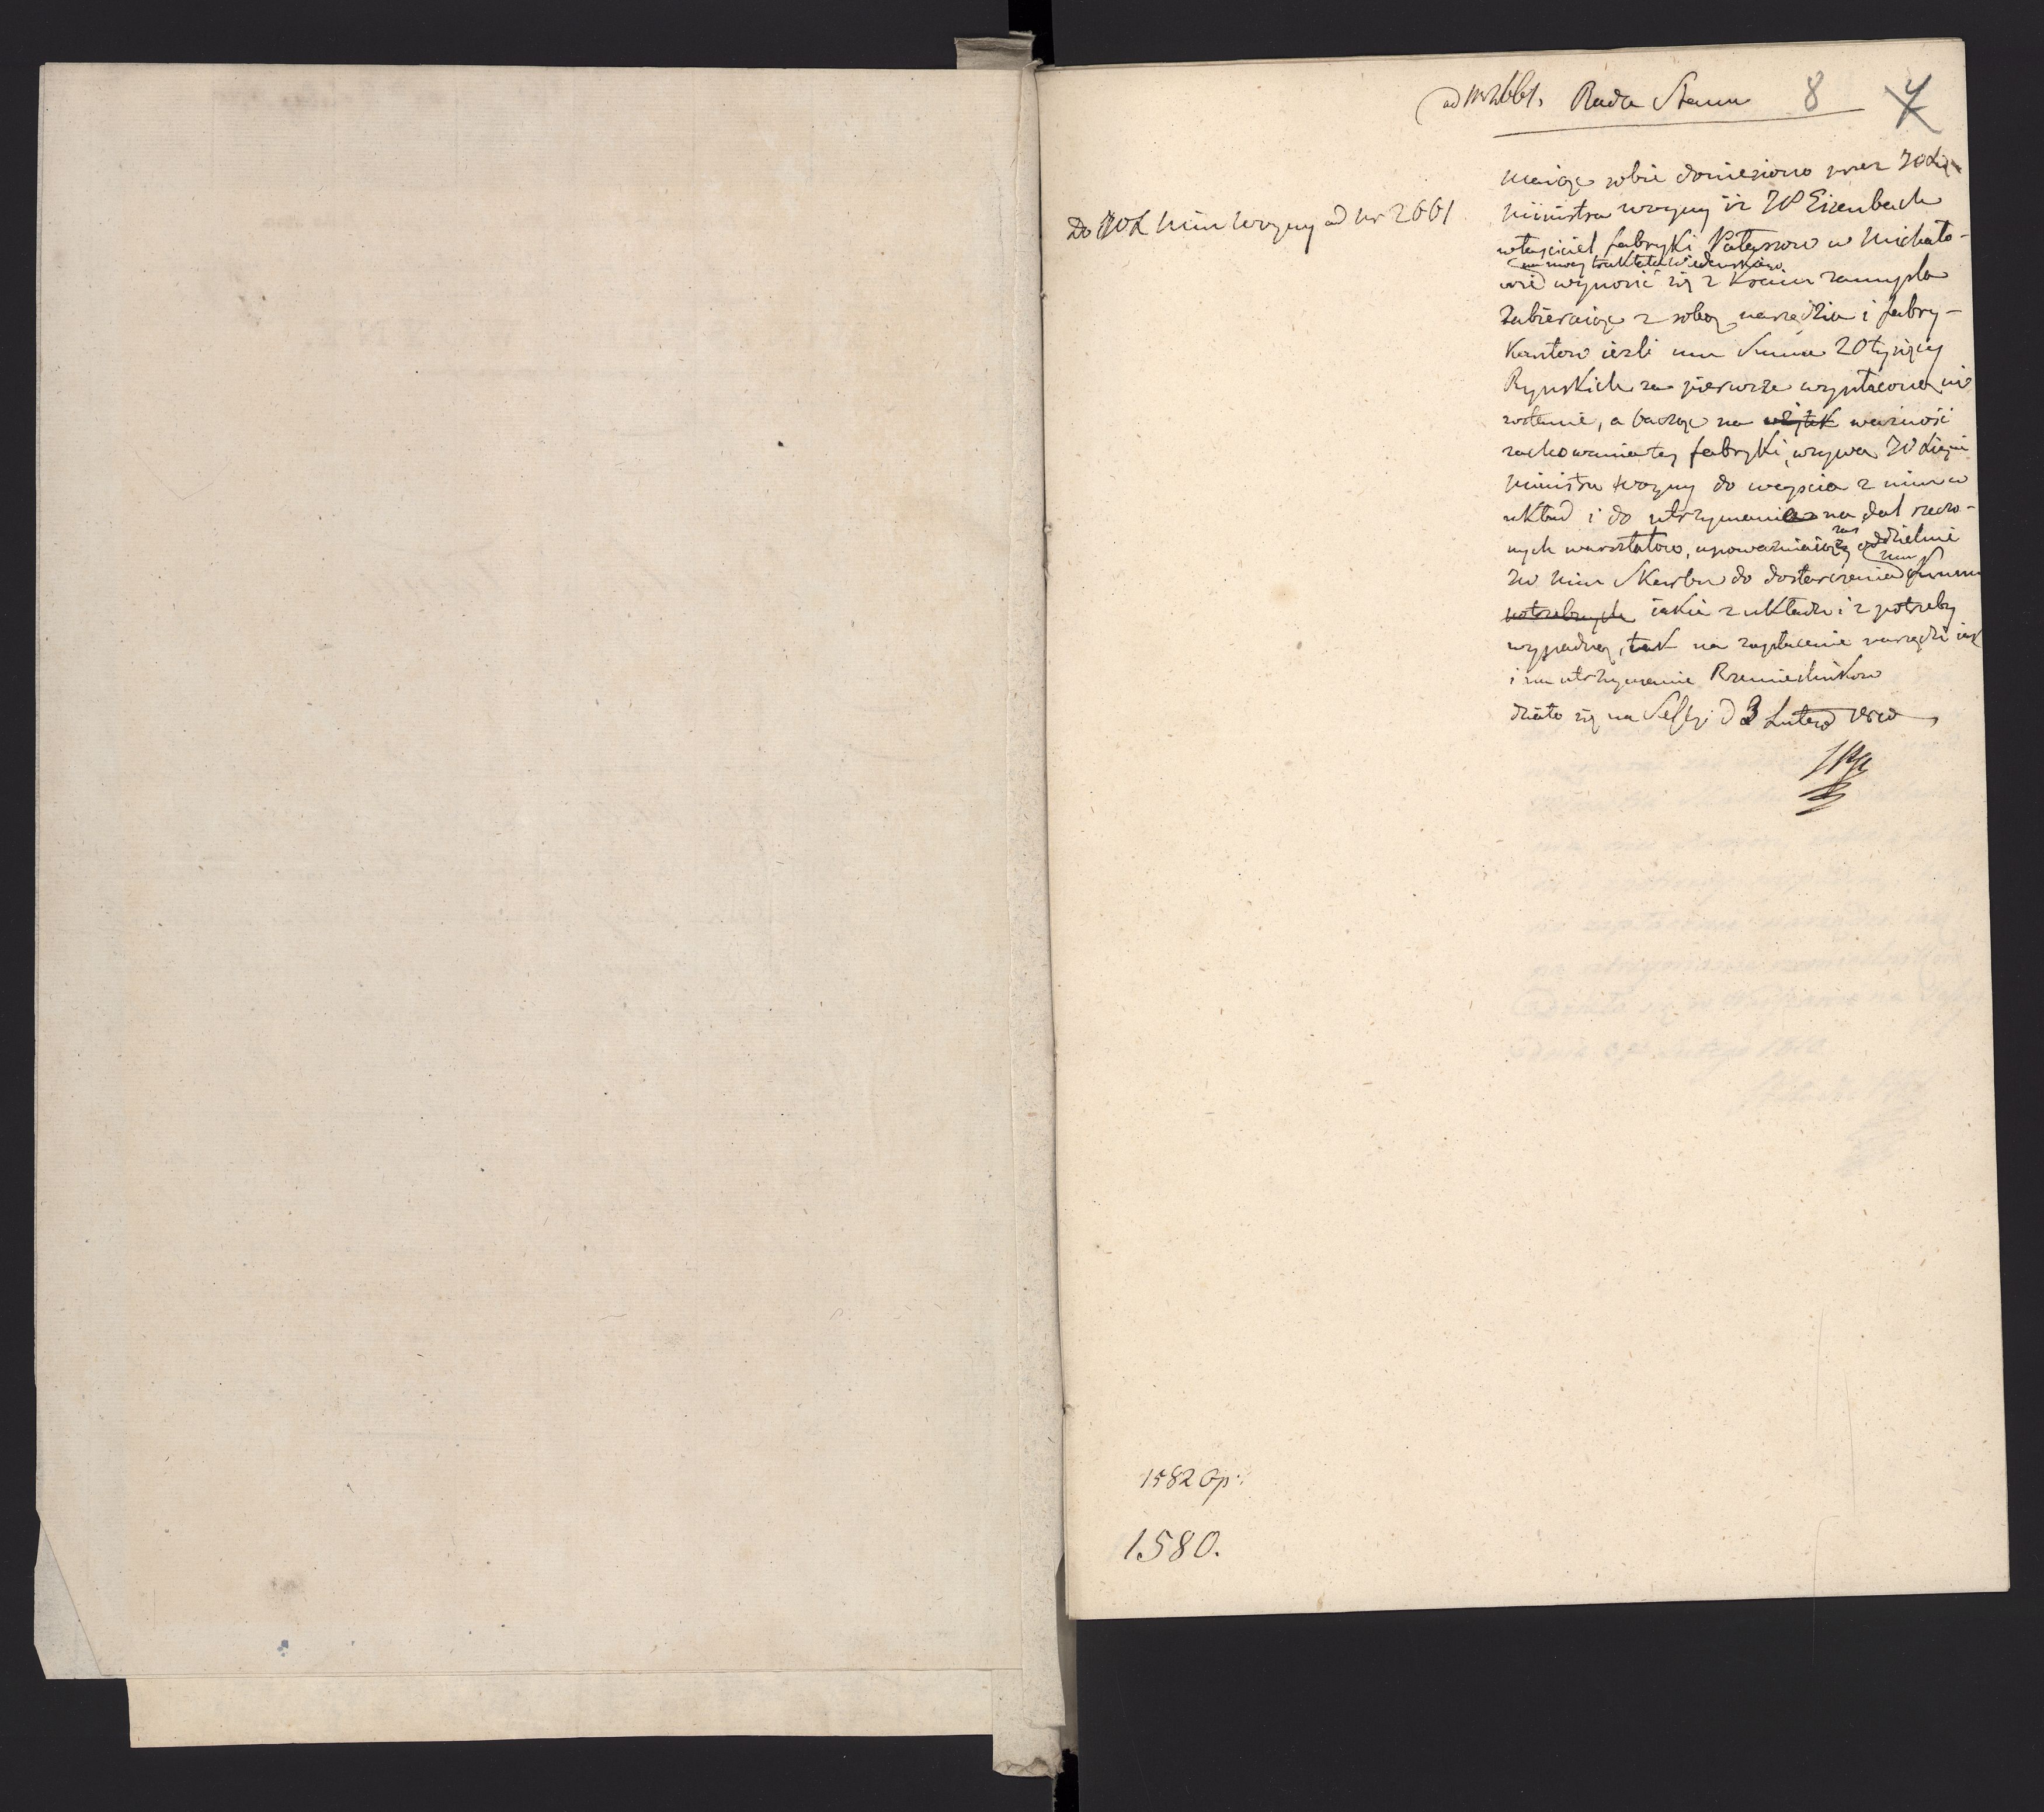 ad Nr 2661. Rada Stanu 8 7
Do JWL Min Woyny ad Nr 2661
maiąc sobie doniesiono przez JW
Ministra woyny iż JP Eisenbach
właściciel fabryki Pałaszow w Michało-
na mocy traktatu Wiedeńskiego
wie wynosić się z Kraiu zamyśla
Zabieraiąc z sobą narzędzia i fabry-
Kantow ieżli mu Suma 20 tysięcy
Ryńskich za pierwsze wypłacona nie
zostanie, a bacząc na użytek ważność
zachowania tey fabryki, wzywa JW
Ministra woyny do weyścia z nim w
układ i do utrzymania na dal rzeczo-
nych warsztatow, upoważniaiąc zas oddzielnie
JW Min Skarbu do dostarczenia mu Summ
potrzebnych iakie z układu i z potrzeby
wypadną, tak na zapłacenie narzędzi iak
i na utrzymanie Rzemieślnikow
działo się na Sessyi d 3 Lutego 1810
1582 Gp:
1580.